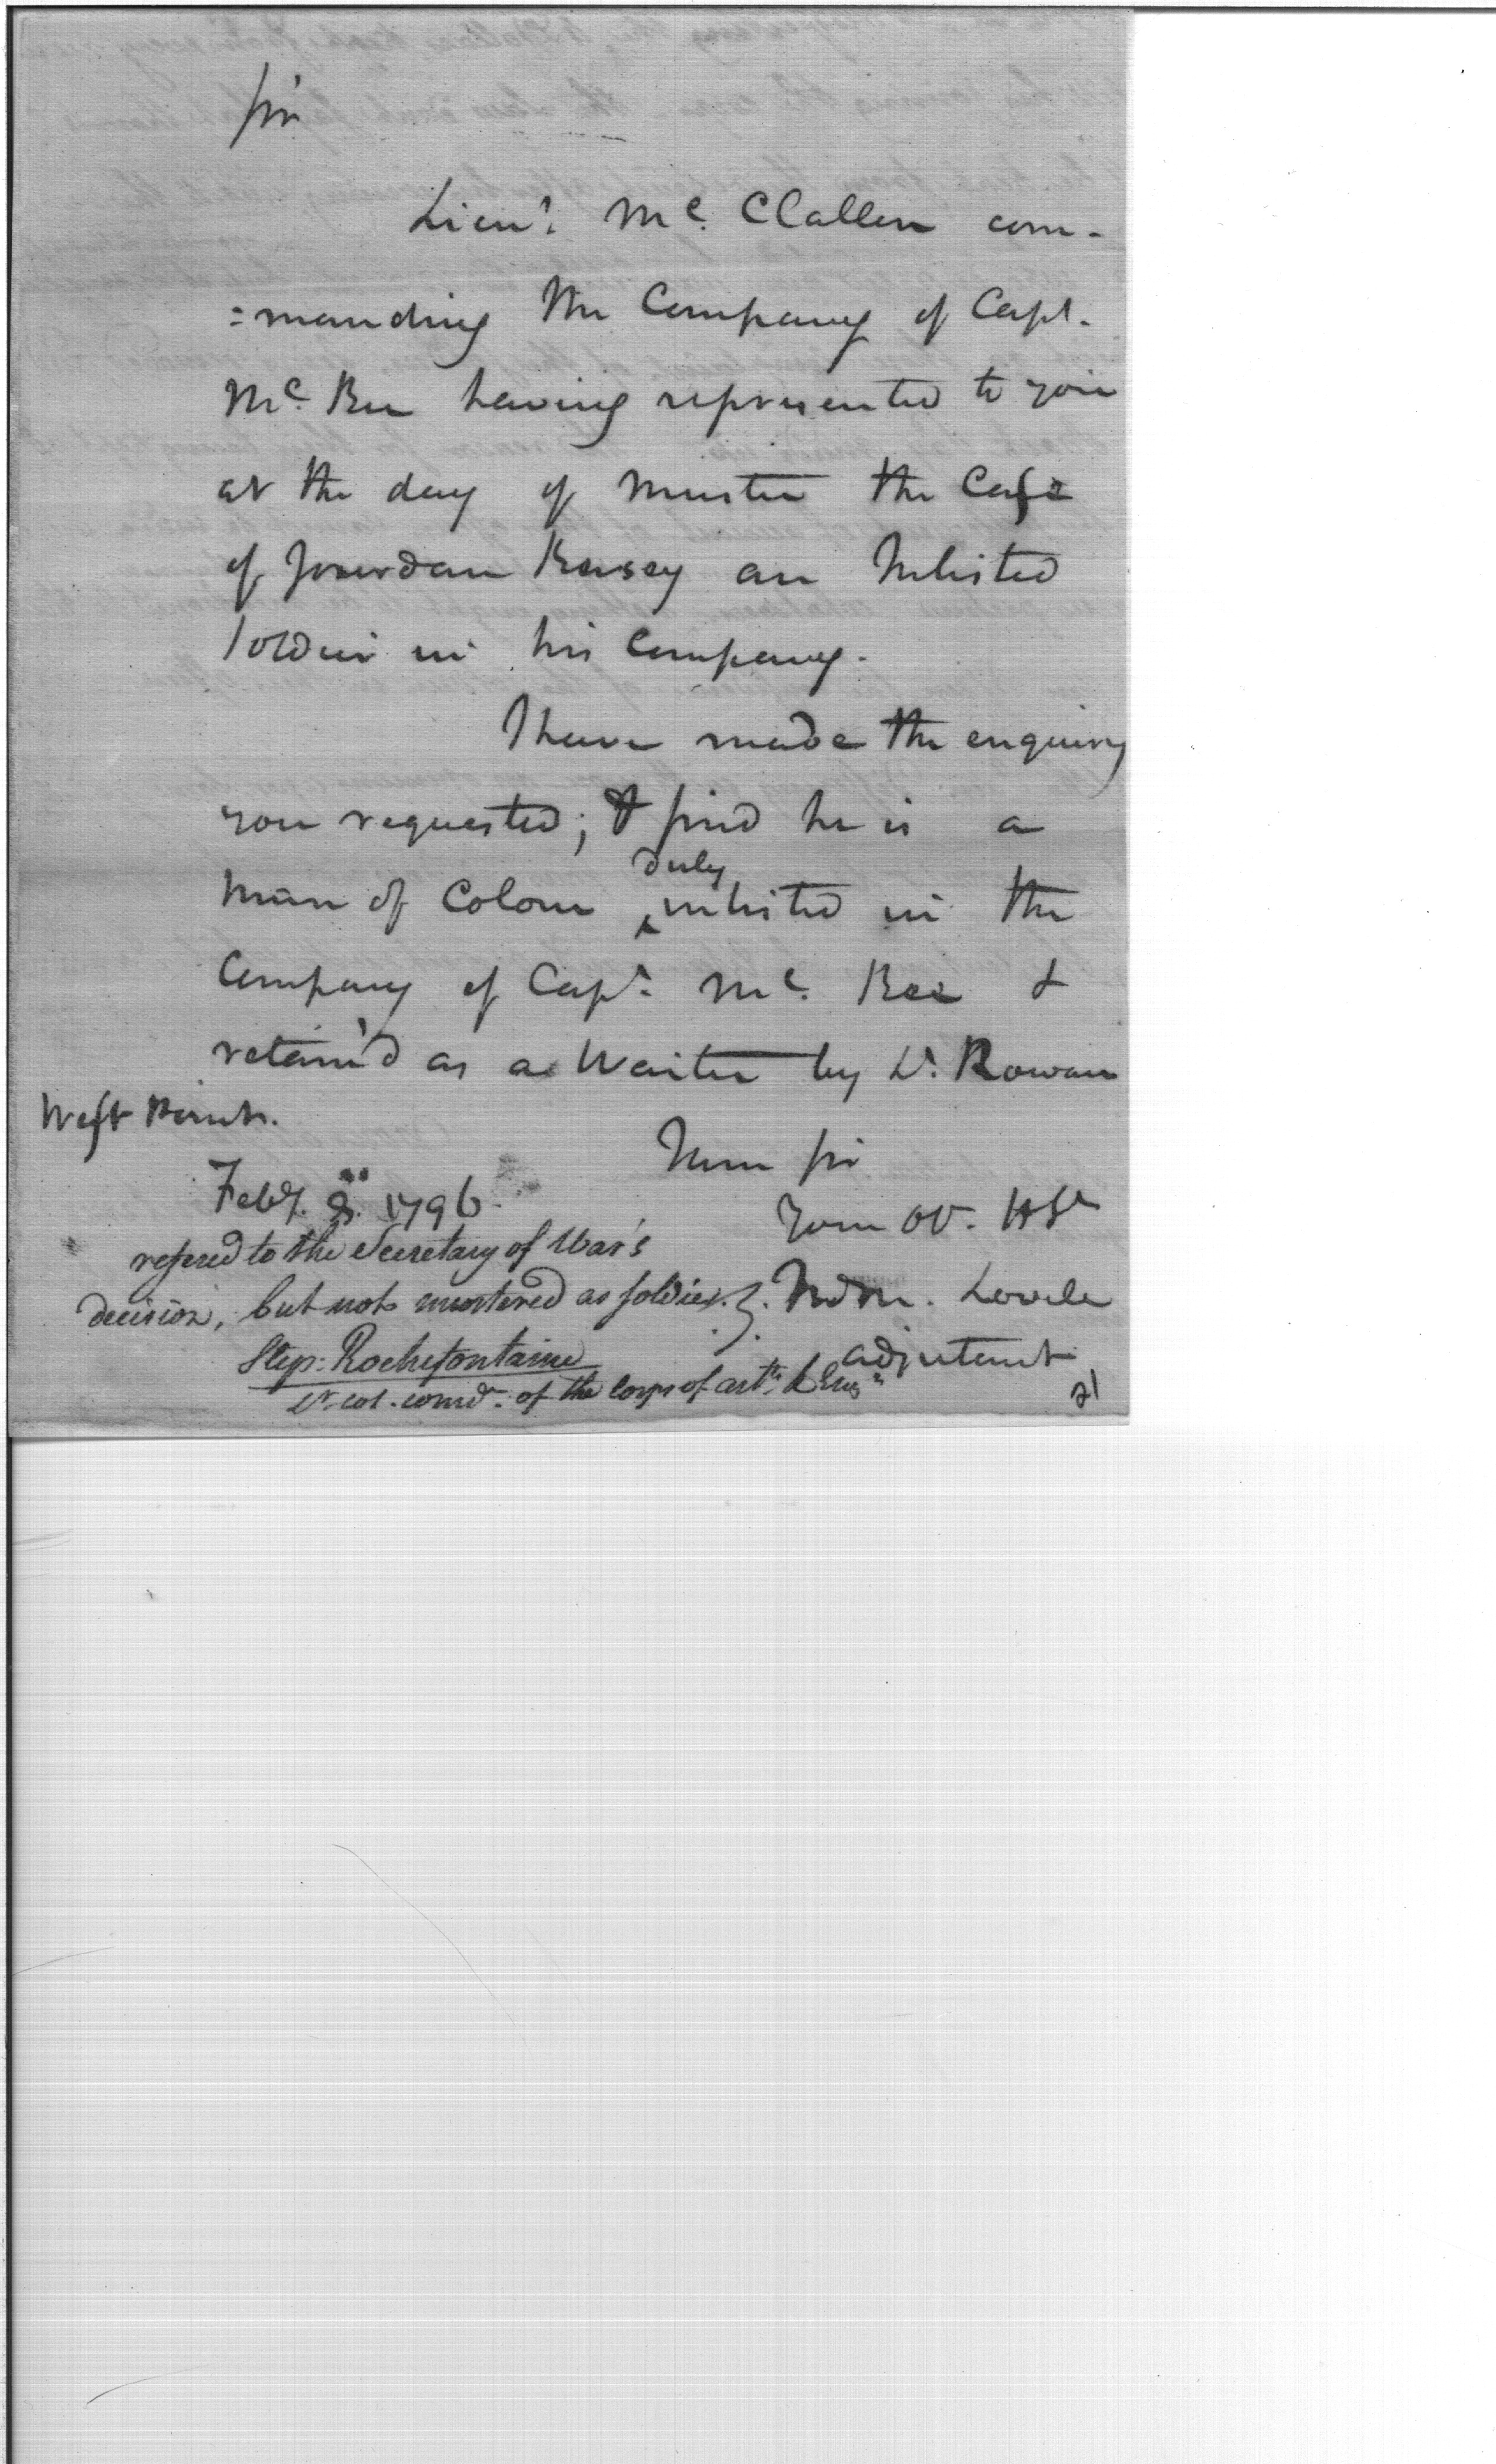 Sir
Lieut. Mc. Clallen com-
=manding the Company of Capt.
Mc. Rea having represented to you
at the day of Muster the Case
of Jourdan Kersey an Inlisted
Soldier in his Company.
I have made the enquiry
you requested; & find he is a
Man of Colour duly inlisted in the
Company of Capt. Mc. Rea &
retain'd as a Waiter by Lt. Rowan
West Point.
I am Sir
Feby. 8. 1796.
Your Ob. HSt
refered to the Secretary of War's
decision, but not mustered as soldier.
Lovell
adjutant
Step: Rochefontaine
Lt. col. comdt. of the Corps of arty. & Engrs
21